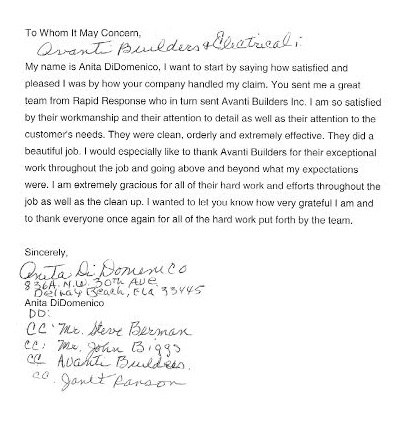 To Whom It May Concern,
Avanti Builders & Electrical:
My name is Anita DiDomenico, I want to start by saying how satisfied and
pleased I was by how your company handled my claim. You sent me a great
team from Rapid Response who in turn sent Avanti Builders Inc. I am so satisfied
by their workmanship and their attention to detail as well as their attention to the
customer's needs. They were clean, orderly and extremely effective. They did a
beautiful job. I would especially like to thank Avanti Builders for their exceptional
work throughout the job and going above and beyond what my expectations
were. I am extremely gracious for all of their hard work and efforts throughout the
job as well as the clean up. I wanted to let you know how very grateful I am and
to thank everyone once again for all of the hard work put forth by the team.
Sincerely,
Anita Di Domenico
836A. N.W. 30th Ave
Delray Beach, Fla 33445
Anita DiDomenico
DD:
CC: Mr. Steve Berman
CC: Mr. John Biggs
CC Avanti Builders.
CC. Janet